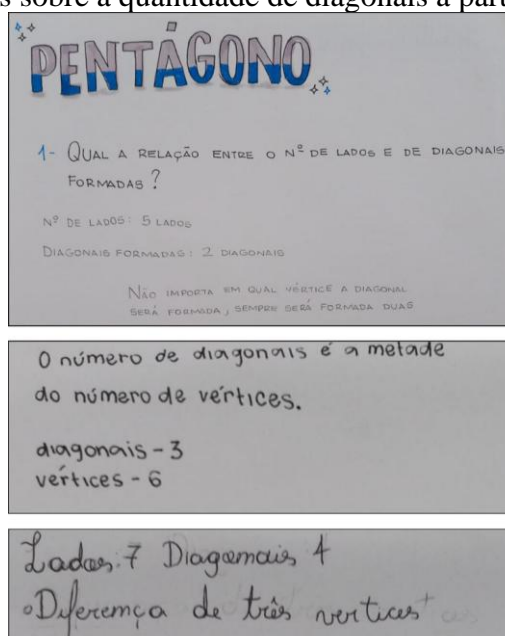 s sobre a quantidade de diagonais a part
PENTÁGONO
1- QUAL A RELAÇÃO ENTRE O Nº DE LADOS E DE DIAGONAIS
FORMADAS?
Nº DE LADOS: 5 LADOS
DIAGONAIS FORMADAS: 2 DIAGONAIS
NÃO IMPORTA EM QUAL VÉRTICE A DIAGONAL
SERÁ FORMADA, SEMPRE SERÁ FORMADA DUAS
O número de diagonais é a metade
do número de vértices.
diagonais - 3
vértices - 6
Lados: 7 Diagomais 4
Diferemça de três vertices